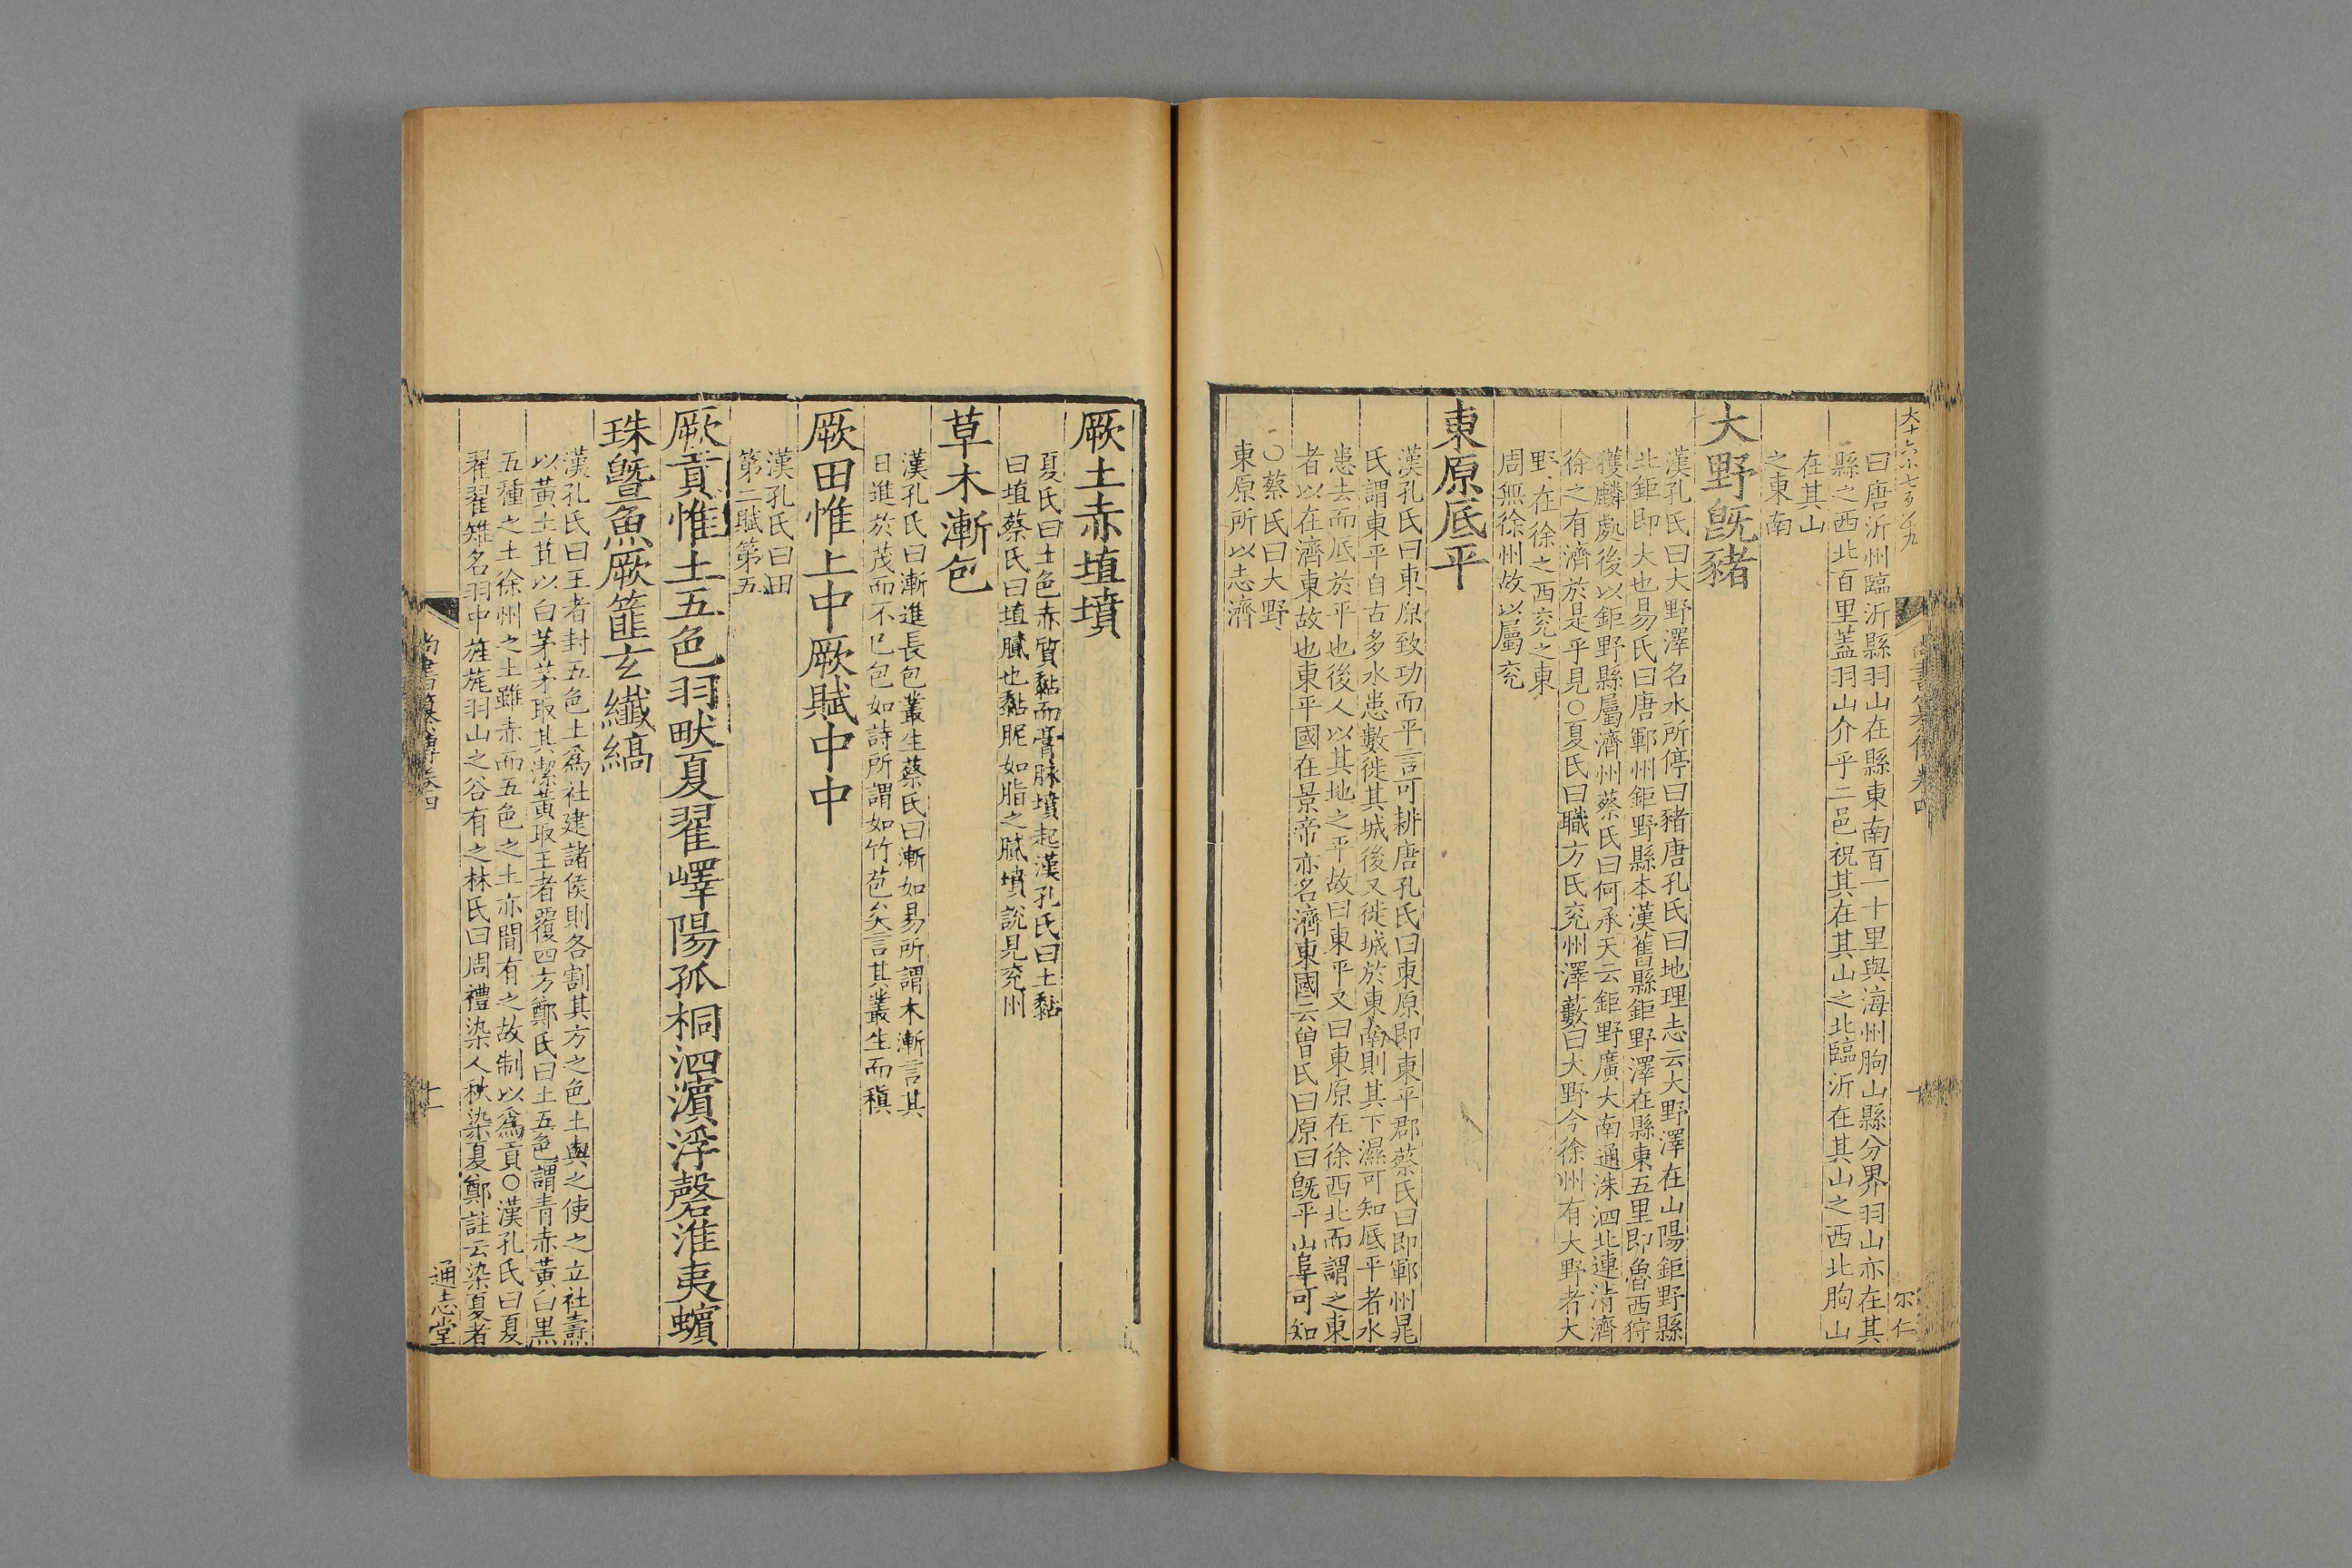 曰唐沂州臨沂縣羽山在縣東南百一十里與海州朐山縣分界羽山亦在其
縣之西北百里蓋羽山介乎二邑祝其在其山之北臨沂在其山之西北朐山
在其山
之東南
大野旣豬
漢孔氏曰大野澤名水所停曰豬唐孔氏曰地理志云大野澤在山陽鉅野縣
北鉅即大也易氏曰唐鄆州鉅野縣本漢舊縣鉅野澤在縣東五里即魯西狩
獲麟處後以鉅野縣屬濟州蔡氏曰何承天云鉅野廣大南通洙泗北連淸濟
徐之有濟於是乎見○夏氏曰職方氏兖州澤藪曰大野今徐州有大野者大
野在徐之西兖之東
周無徐州故以屬兖
東原厎平
漢孔氏曰東原致功而平言可耕唐孔氏曰東原即東平郡蔡氏曰即鄆州晁
氏謂東平自古多水患數徙其城後又徙城於東南則其下濕可知厎平者水
患去而厎於平也後人以其地之平故曰東平又曰東原在徐西北而謂之東
者以在濟東故也東平國在景帝亦名濟東國云曾氏曰原曰旣平山阜可知
○蔡氏曰大野
東原所以志濟
厥土赤埴墳
夏氏曰土色赤質黏而膏脉墳起漢孔氏曰土黏
曰埴蔡氏曰埴膩也黏昵如脂之膩墳說見兖州
草木漸包
漢孔氏曰漸進長包叢生蔡氏曰漸如易所謂木漸言其
日進於茂而不已包如詩所謂如竹苞矣言其叢生而稹
厥田惟上中厥賦中中
漢孔氏曰田
第二賦第五
厥貢惟土五色羽畎夏翟嶧陽孤桐泗濵浮磬淮夷蠙
珠曁魚厥篚玄纖縞
漢孔氏曰王者封五色土爲社建諸侯則各割其方之色土與之使之立社燾
以黃土苴以白茅茅取其潔黃取王者覆四方鄭氏曰土五色謂青赤黃白黑
五種之土徐州之土雖赤而五色之土亦間有之故制以爲貢○漢孔氏曰夏
翟翟雉名羽中旌旄羽山之谷有之林氏曰周禮染人秋染夏鄭註云染夏者
尚書纂傳卷四
十一
通志堂